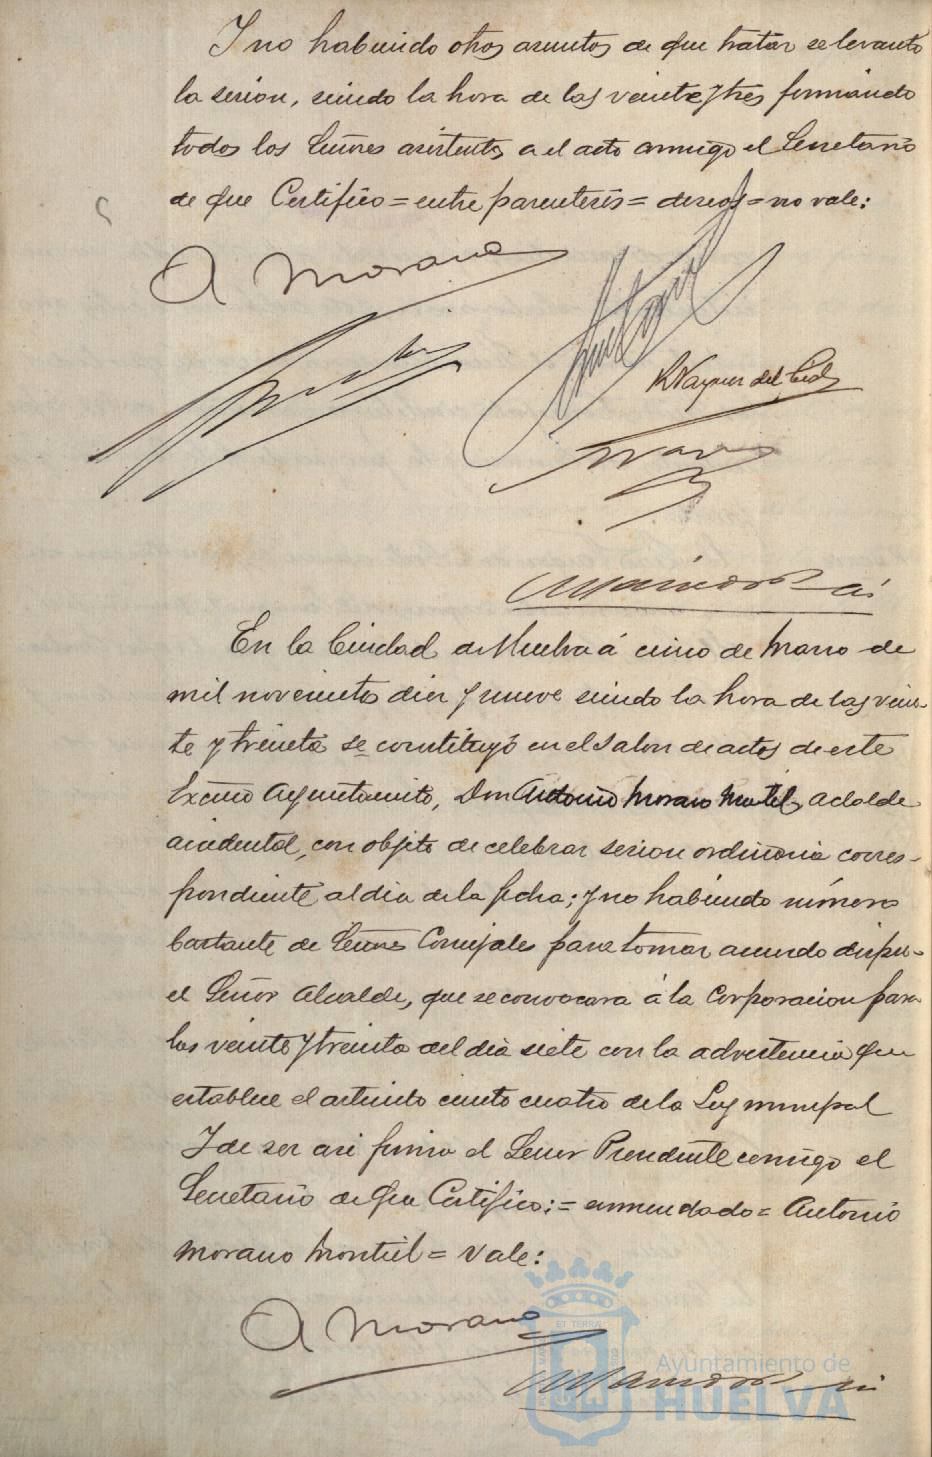 Y no habiendo otros asuntos de que tratar se levanto
la sesion, siendo la hora de las veinte y tres firmando
todos los Señores asistentes a el acto conmigo el Secretario
de que Certifico = entre parentesis = deseos = no vale:
A Morano
R Vazquez del Cid
En la Ciudad de Huelva á cinco de Marzo de
mil novecientos diez y nueve siendo la hora de las vein-
te y treinta se constituyó en el salon de actos de este
Excmo Ayuntamiento, Don Antonio Morano Montiel, Alcalde
accidental, con objeto de celebrar sesion ordinaria corres-
pondiente al dia de la fecha; y no habiendo número
bastante de Señores Concejales para tomar acuerdo dispu-
el Señor Alcalde, que se convocara á la Corporacion para
las veinte y treinta del dia siete con la advertencia que
establece el articulo ciento cuatro de la Ley municipal
Y de ser asi firma el Señor Presidente conmigo el
Secretario de que Certifico: = enmendado = Antonio
Morano Montiel = Vale:
A Morano
Ayuntamiento de
HUELVA